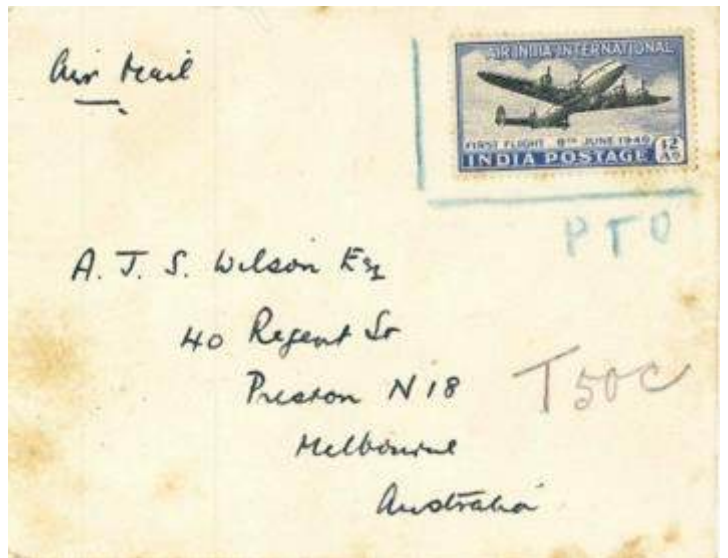 Air Mail
AIR INDIA INTERNATIONAL
FIRST FLIGHT 8TH JUNE 1948
INDIA POSTAGE 12 AS
PTO
A. J. S. Wilson Esq
40 Regent St
Preston N 18
T 50 C
Melbourne
Australia